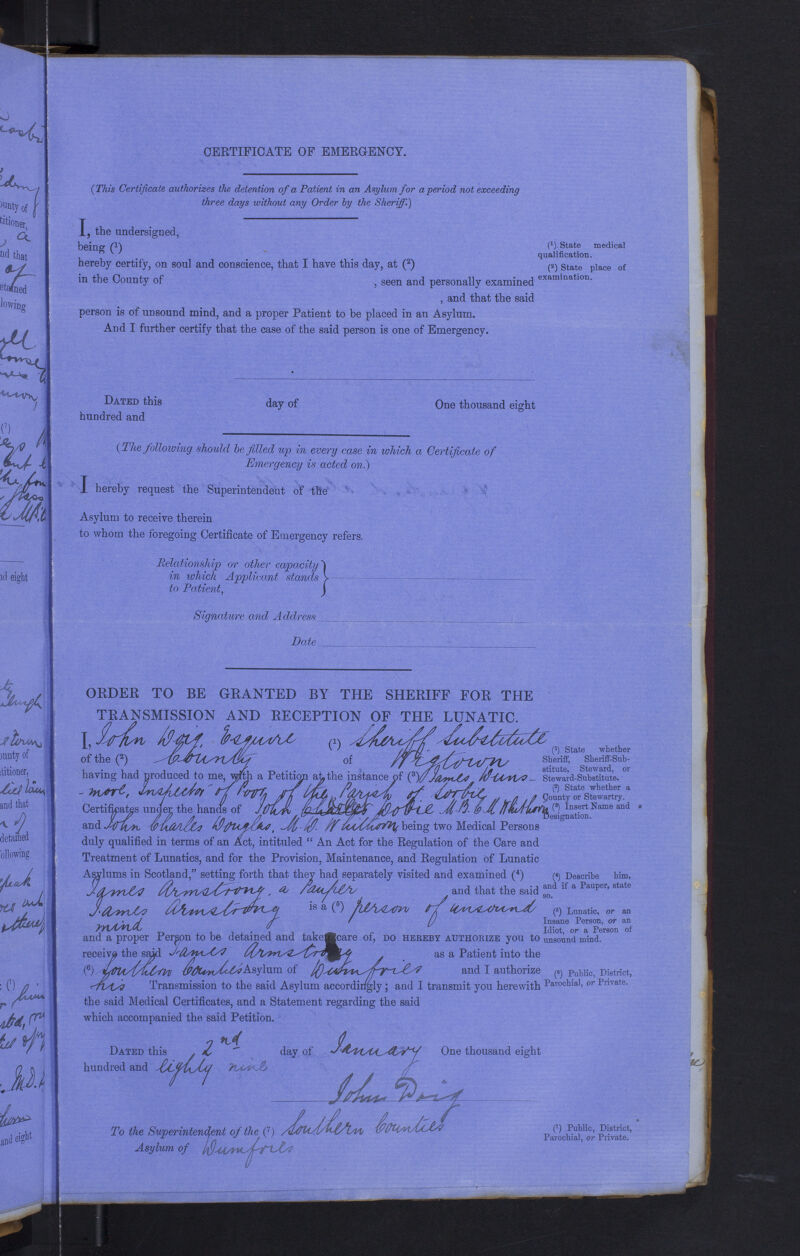 CERTIFICATE OF EMERGENCY.
(This Certificate authorizes the detention of a Patient in an Asylum for a period not exceeding
three days without any Order by the Sheriff.)
I, the undersigned,
being (¹)
hereby certify, on soul and conscience, that I have this day, at (²)
in the County of , seen and personally examined
, and that the said
person is of unsound mind, and a proper Patient to be placed in an Asylum.
And I further certify that the case of the said person is one of Emergency.
(¹) State medical
qualification.
(²) State place of
examination.
DATED this day of One thousand eight
hundred and
(The following should be filled up in every case in which a Certificate of
Emergency is acted on.)
I hereby request the Superintendent of the
Asylum to receive therein
to whom the foregoing Certificate of Emergency refers.
Relationship or other capacity
in which Applicant stands
to Patient,
Signature and Address
Date
ORDER TO BE GRANTED BY THE SHERIFF FOR THE
TRANSMISSION AND RECEPTION OF THE LUNATIC.
I, John Doig, Esquire (¹) Sheriff Substitute
of the (²) County of Wigtown
having had produced to me, with a Petition at the instance of (³) James Duns-
-more, Inspector of Poor of the Parish of Sorbie
Certificates under the hands of John Charles Dobie M.B.C.M Whithorn
and John Charles Douglas, M.D. Whithorn being two Medical Persons
duly qualified in terms of an Act, intituled “ An Act for the Regulation of the Care and
Treatment of Lunatics, and for the Provision, Maintenance, and Regulation of Lunatic
Asylums in Scotland,” setting forth that they had separately visited and examined (⁴)
James Armstrong, a Pauper and that the said
James Armstrong is a (⁵) person of unsound
mind
and a proper Person to be detained and taken care of, DO HEREBY AUTHORIZE you to
receive the said James Armstrong as a Patient into the
(⁶) Southern Counties Asylum of Dumfries and I authorize
his Transmission to the said Asylum accordingly; and I transmit you herewith
the said Medical Certificates, and a Statement regarding the said
which accompanied the said Petition.
(¹) State whether
Sheriff, Sheriff-Sub-
stitute, Steward, or
Steward-Substitute.
(²) State whether a
County or Stewartry.
(³) Insert Name and
Designation.
(⁴) Describe him,
and if a Pauper, state
so.
(⁵) Lunatic, or an
Insane Person, or an
Idiot, or a Person of
unsound mind.
(⁶) Public, District,
Parochial, or Private.
DATED this 2nd day of January One thousand eight
hundred and Eighty nine
John Doig
To the Superintendent of the (⁷) Southern Counties
Asylum of Dumfries
(⁷) Public, District,
Parochial, or Private.